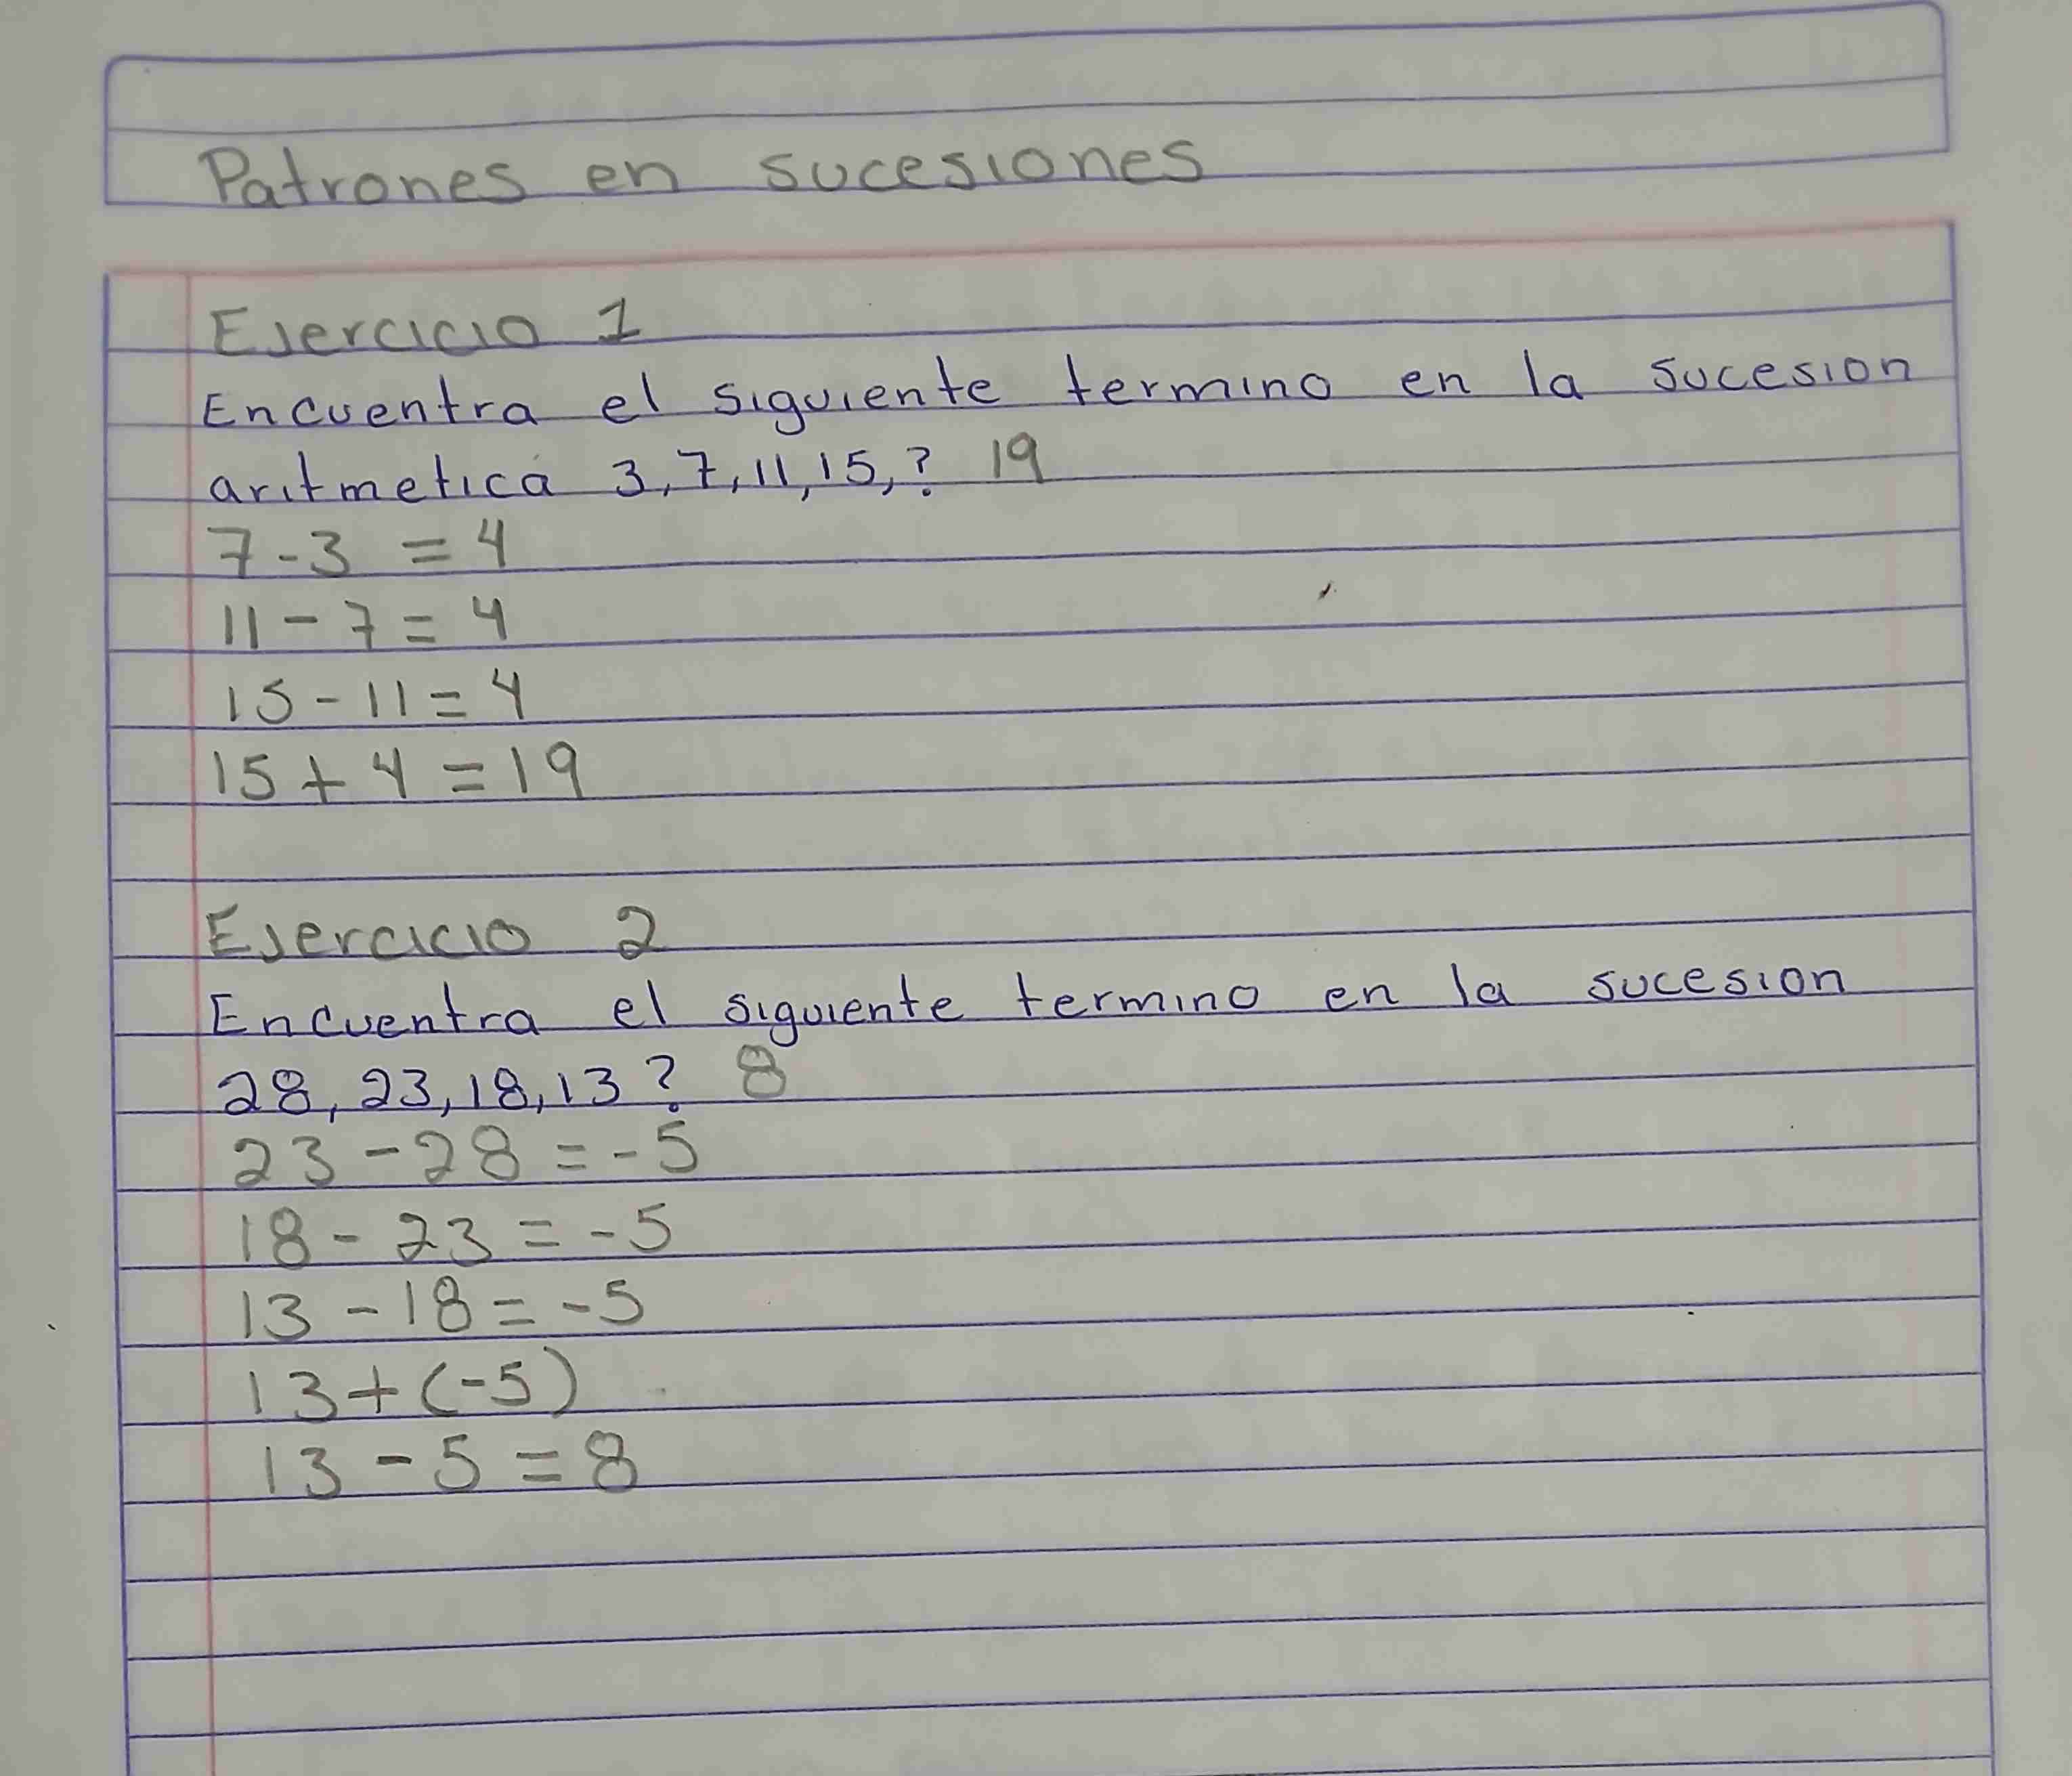 Patrones en sucesiones
Ejercicio 1
Encuentra el siguiente termino en la sucesion
aritmetica 3, 7, 11, 15, ? 19
7 - 3 = 4
11 - 7 = 4
15 - 11 = 4
15 + 4 = 19
Ejercicio 2
Encuentra el siguiente termino en la sucesion
28, 23, 18, 13 ? 8
23 - 28 = - 5
18 - 23 = - 5
13 - 18 = - 5
13 + (-5)
13 - 5 = 8